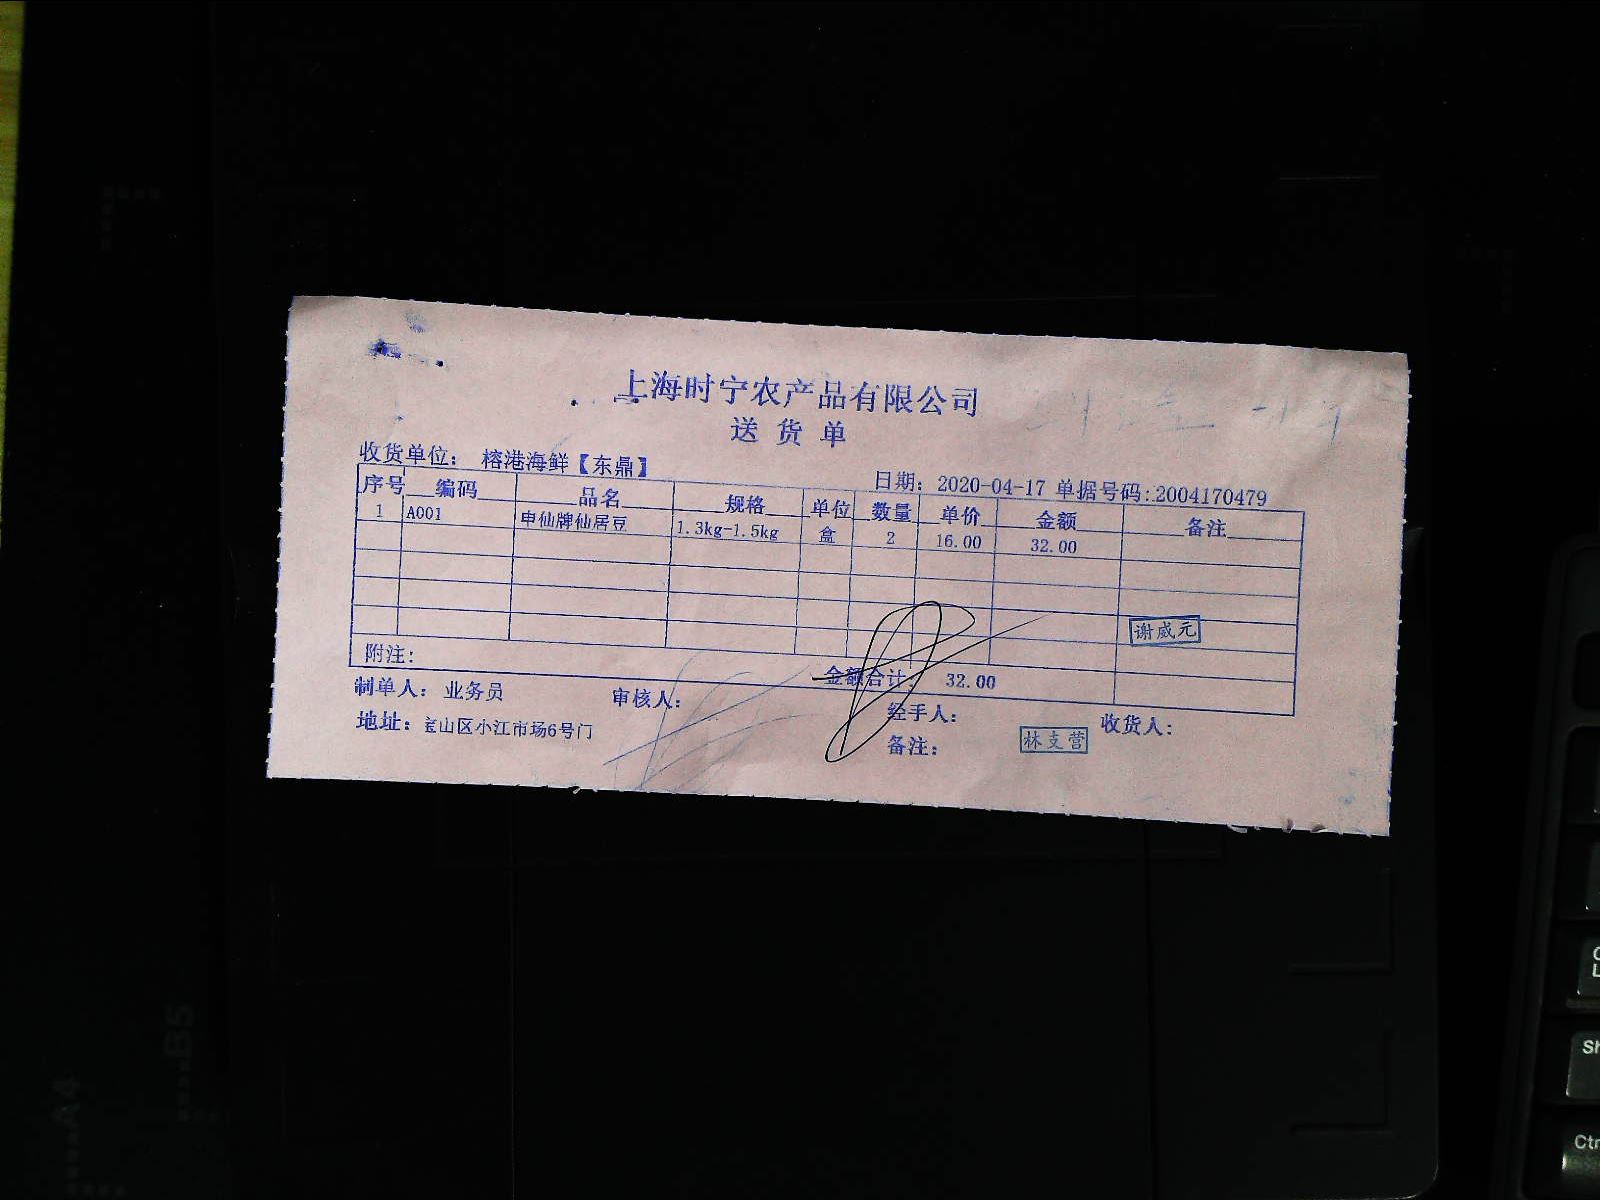 上海时宁农产品有限公司
送货单
收货单位： 榕港海鲜【东鼎】
日期：2020-04-17 单据号码：2004170479
序号 编码 品名 规格 单位 数量 单价 金额 备注
1 A001 申仙牌仙居豆 1.3kg-1.5kg 盒 2 16.00 32.00
谢威元
附注：
金额合计： 32.00
制单人： 业务员 审核人： 经手人： 收货人：
地址：宝山区小江市场6号门 备注： 林支营
A4
B5
Ctr